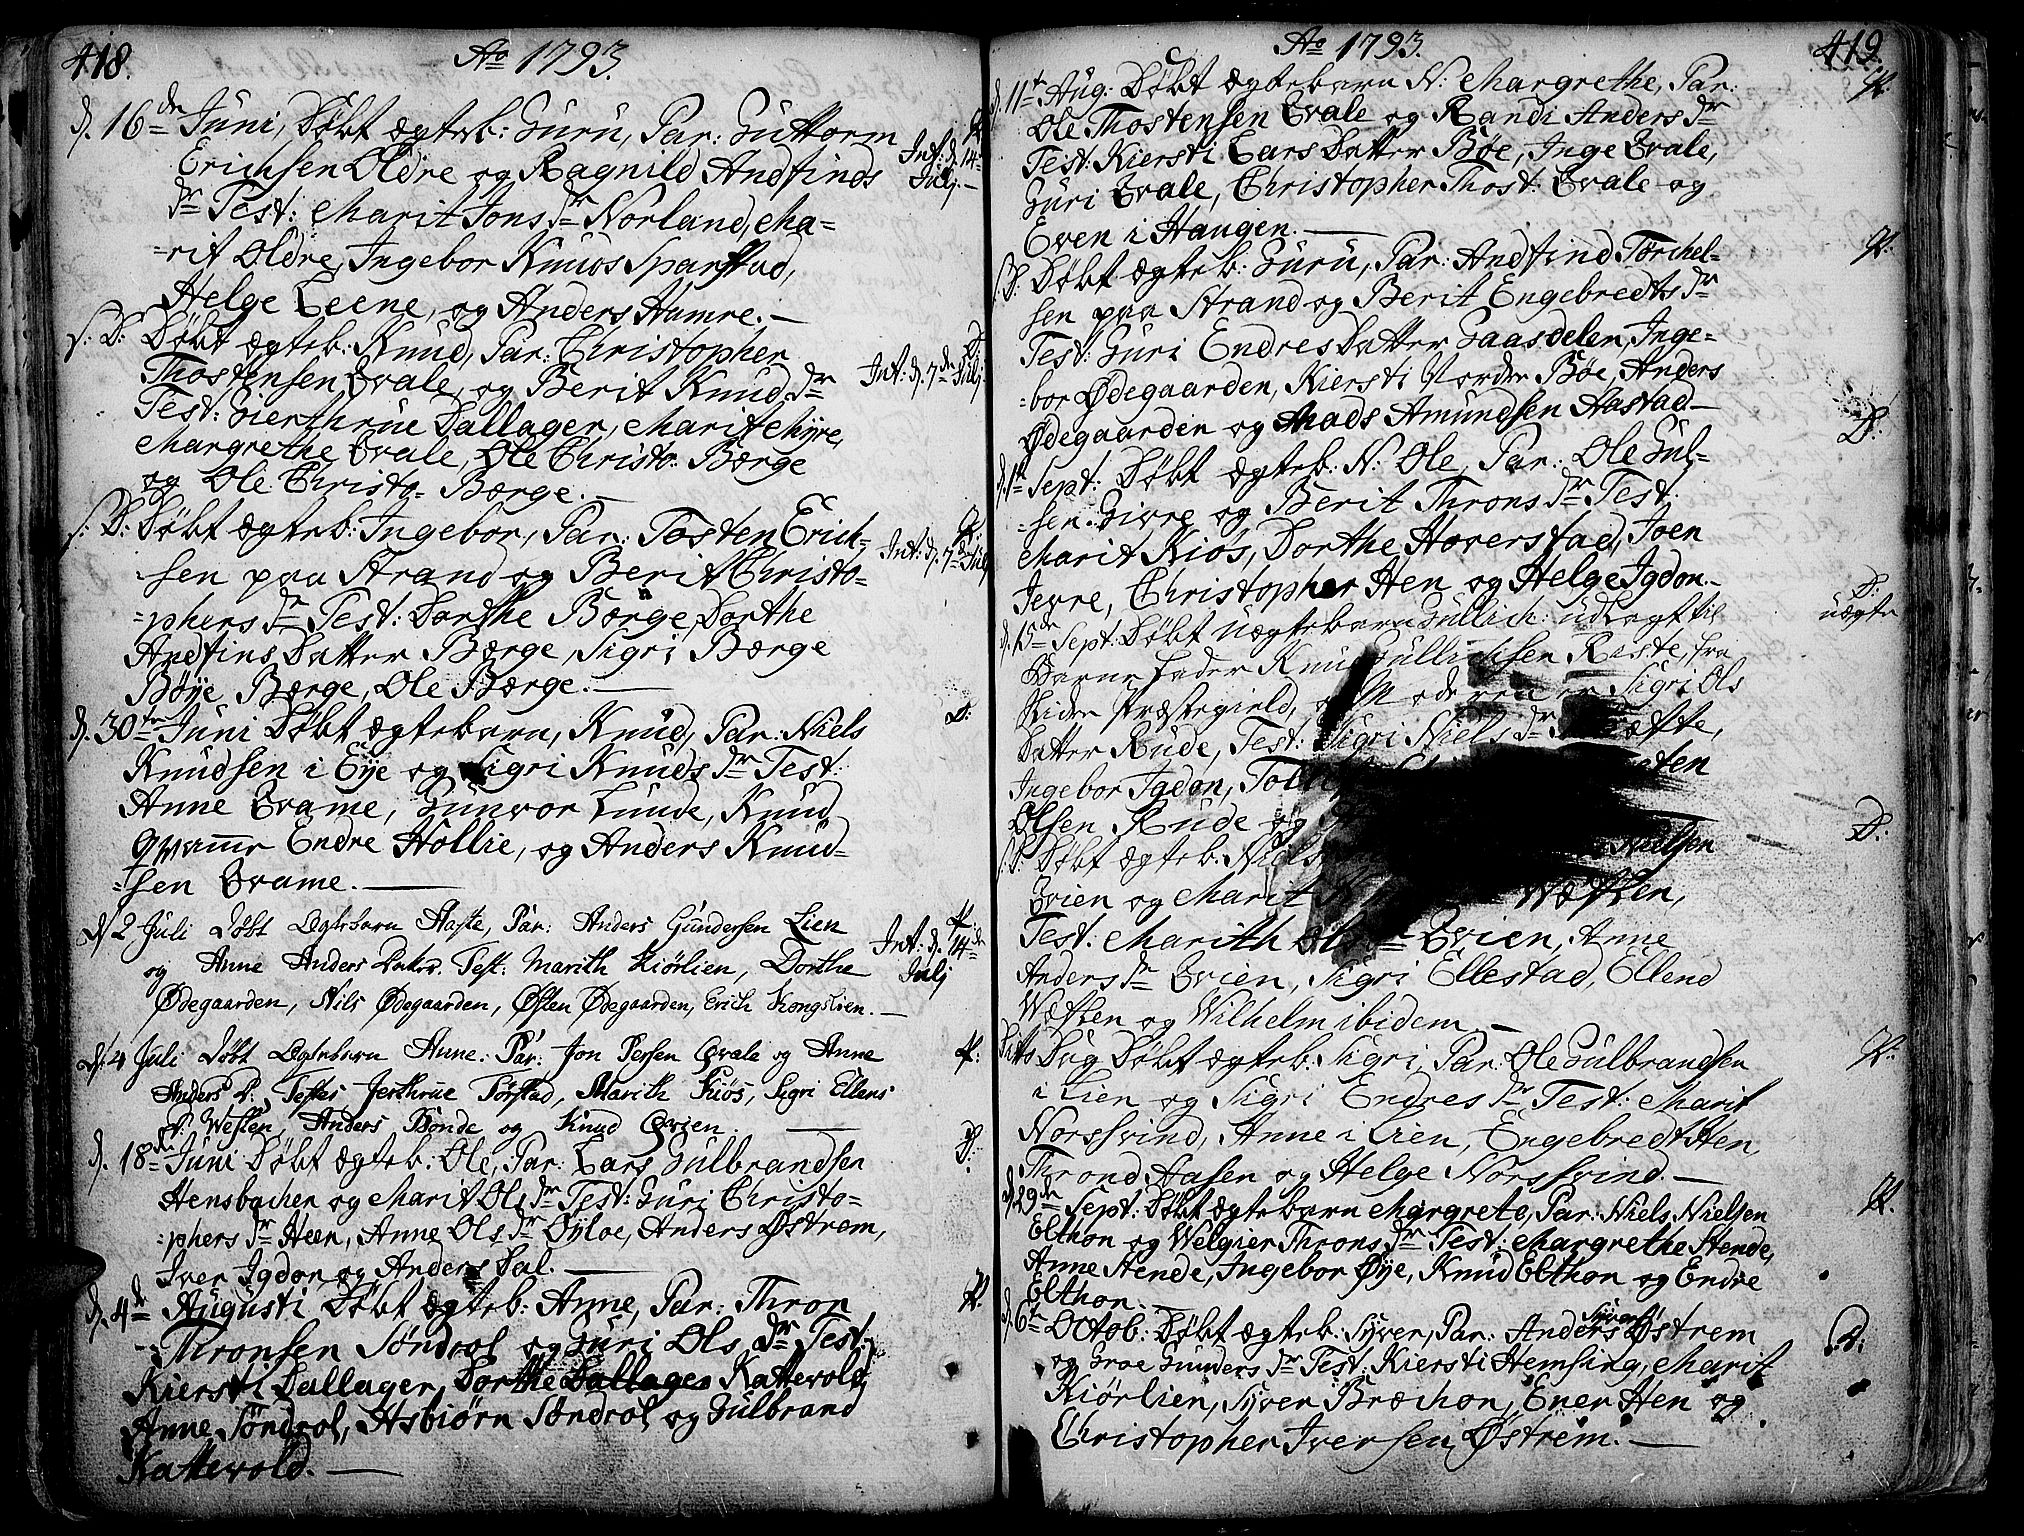 418.
Ao 1793.
d. 16de Juni, Døbt Ægteb: Guru, Par: Guttorm
Erichsen Oldre og Ragnild Andfinds
Dr Test: Marit Jons Dr Norland, Ma-
-rit Oldre, Ingebor Knuds Sparstad,
Helge Leene, og Anders Hamre.—
Int: d. 14 Julj.—
s: D: Døbt Ægteb: Knud, Par: Christopher
Thostensen Qvale, og Berit Knuds Dr
Test: Gierthrue Dallager, Marit Myre,
Margrethe Qvale, Ole Christo: Børge
og Ole Christo= Børge.—
Int: d. 7de Julj
s: D: Døbt Ægteb: Ingebor, Par: Tosten Erich-
sen paa Strand og Berit Christo-
-phers Dr Test: Dorthe Børge, Dorthe
Andfins Datter Børge, Sigri Børge
Bøye Børge, Ole Børge.—
Int: d. 7de Julj
d. 30te Juni Døbt Ægtebarn, Knud, Par: Niels
Knudsen i Eye og Sigri Knuds Dr Test:
Anne Qvame, Gunvor Lunde, Knud
Qvame Endre Hollie, og Anders Knud-
-sen Qvame.—
D:
d. 2 Juli Døbt Ægtebarn Aaste, Par: Anders Gundersen Lien
og Anne Anders Datter. Test: Marith Kiørlien, Dorthe
Ødegaarden, Nils Ødegaarden, Østen Ødegaarden, Erich Kongslien.—
Int: d. 14de Julj
d. 4 Juli Døbt Ægtebarn Anne: Par: Jon Persen Qvale og Anne
Anders D: Testes Jerthrue Tørstad, Marith Kiøs, Sigri Ellens
D: Westen, Anders Bonde og Knud Qvien.—
d. 18de Juni Døbt Ægteb: Ole, Par: Lars Gulbrandsen
Hensbachen og Marit Ols Dr Test: Guri Christo-
-phers Dr Heen, Anne Ols Dr Øyloe, Anders Østrem,
Iver Igdon og Anders Dal.—
D:
d. 4de Augusti Døbt Ægteb: Anne, Par: Thron
Thronsen Søndrol og Guri Ols Dr Test:
Kiersti Dallager, Dorthe Dallager Kattevold,
Anne Søndrol, Asbiørn Søndrol og Gulbrand
Kattevold.—
419.
Ao 1793.
d. 11te Aug: Døbt Ægtebarn N: Margrethe, Par:
Ole Thostensen Qvale og Randi Anders Dr
Test: Kiersti Lars Datter Bøe, Inge Qvale,
Guri Qvale, Christopher Thost: Qvale og
Even i Haugen.—
s. D: Døbt Ægteb: Guru, Par: Andfind Torchel-
sen paa Strand og Berit Engebredts Dr
Test: Guri Endres Datter Gaasdelen, Inge-
-bor Ødegaarden, Kiersti Bøe, Anders
Ødegaarden og Mads Amundsen Hastad—
d. 1te Sept: Døbt Ægteb: N: Ole, Par: Ole Gul-
-sen Givre og Berit Throns Dr Test:
Marit Kiøs, Dorthe Hoverstad, Joen
Jevre, Christopher Hen og Helge Igdon.—
D:
d. 15de Sept: Døbt uægtebarn Gullich: udlagt til
Barne Fader Knud Gullichsen Reste, fra
Præstegield, og Moderen er Sigri Ols
Datter Rude, Test: Sigri Niels Dr
Ingebor Igdon,
Olsen Rude og
D: uægte
s. D: Døbt Ægteb: Niels Nielsen
Qvien og Marit Wæsten,
Test: Marith Ols Dr Qvien, Anne
Anders Dr Qvien, Sigri Ellestad, Ellend
Wæsten og Wilhelm ibidem.—
D:
Dito Dag Døbt Ægteb: Sigri, Par: Ole Gulbrandsen
i Lien og Sigri Endres Dr Test: Marit
Norssvind, Anne i Lien, Engebredt Hen,
Thrond Aasen og Helge Norssvind.—
d. 29de Sept: Døbt Ægtebarn Margrete, Par: Niels Nielsen
Elthon og Welgier Throns Dr Test: Margrethe Stende,
Anne Stende, Ingebor Øye, Knud Elthon og Endre
Elthon.—
d. 6te Octob: Døbt Ægteb: Syver, Par: Anders Syvers: Østrem
og Groe Gunders Dr Test: Kiersti Hemsing, Marit
Kiørlien, Syver Bræchon, Ener Hen og
Christopher Iversen Østrem.—
D: